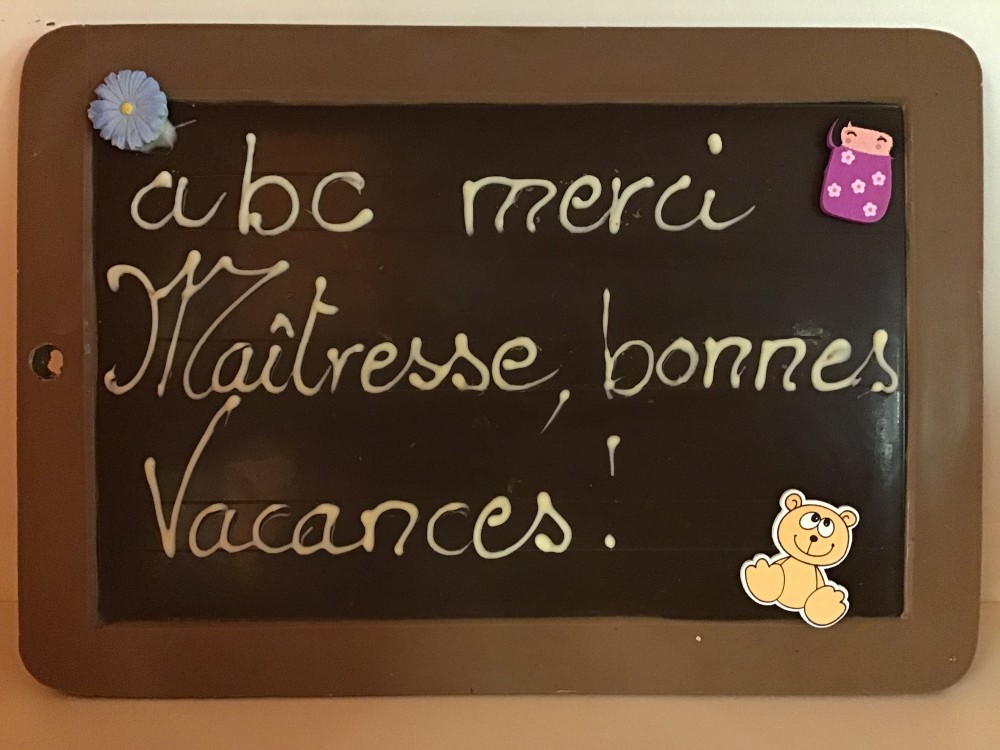 abc merci
Maîtresse, bonnes
Vacances !